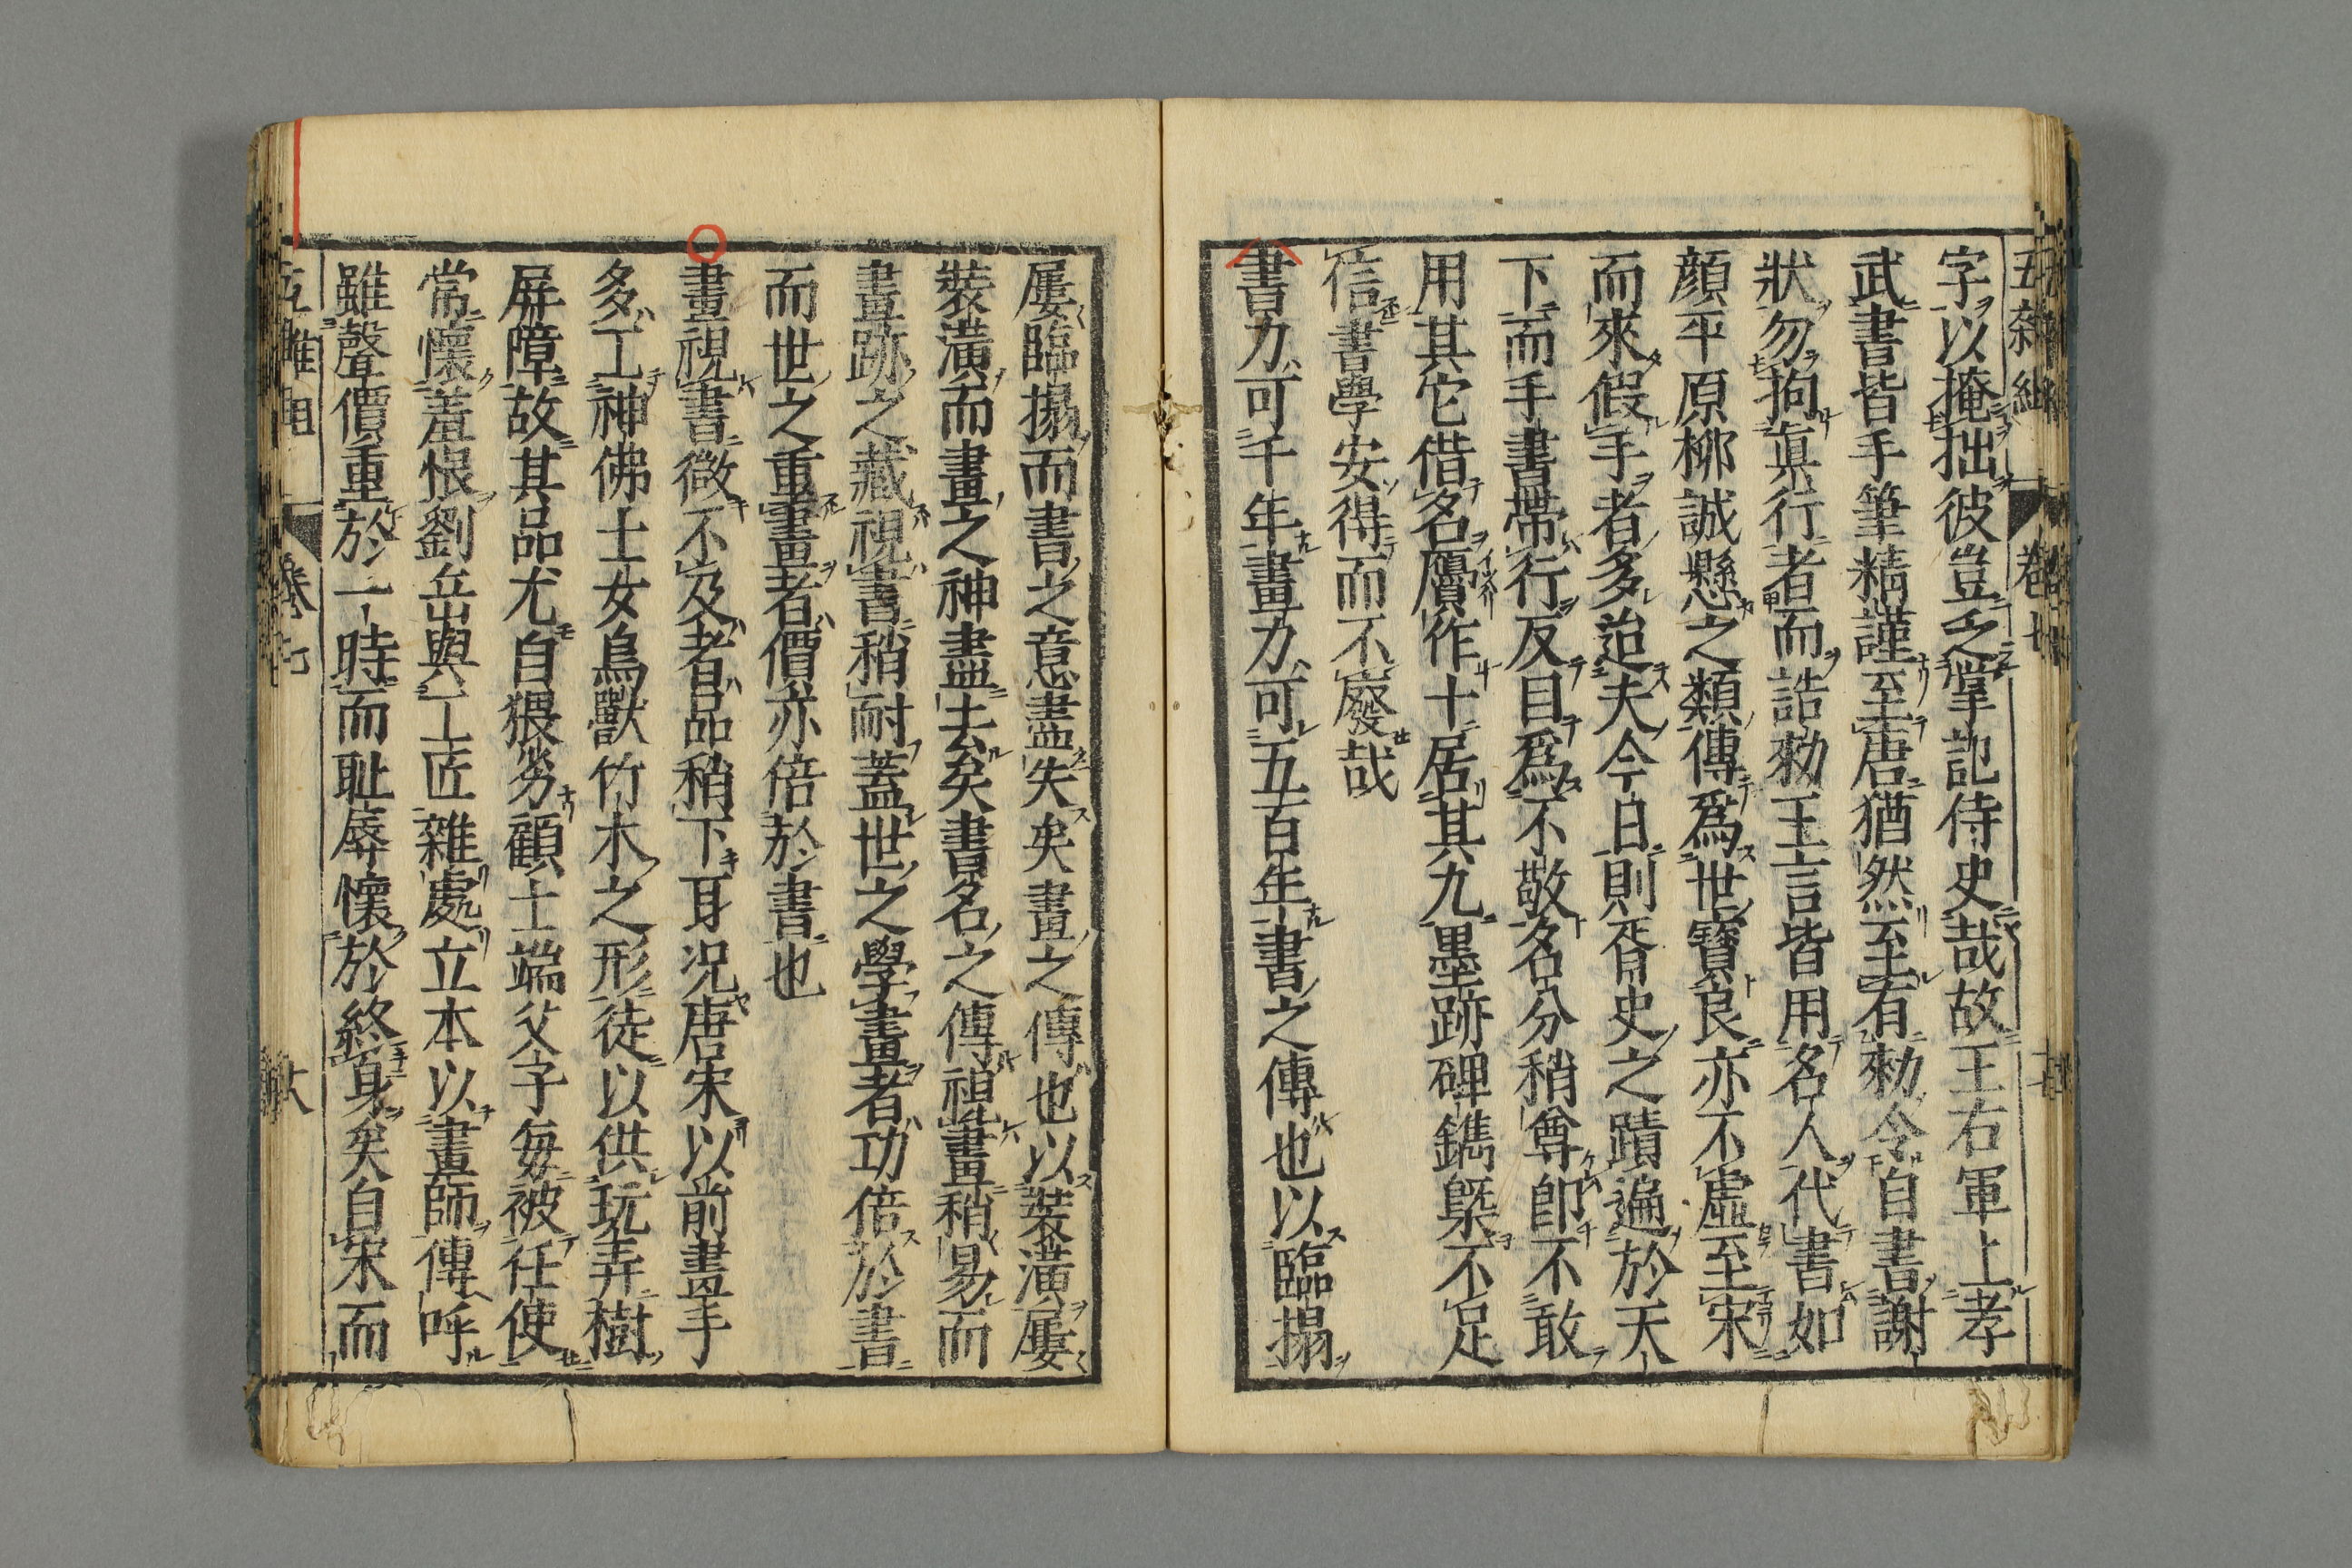 五雜組 卷七
字以掩拙彼豈乏掌記侍史哉故王右軍上孝
武書皆手筆精謹至唐猶然至有勑令自書謝
狀勿拘眞行者而誥勑王言皆用名人代書如
顔平原栁誠懸之類傳爲世寶良亦不虛至宋
而來假手者多迨夫今日則胥史之蹟遍於天
下而手書帶行反目爲不敬名分稍尊卽不敢
用其它借名贋作十居其九墨跡碑鐫槩不足
信書學安得而不廢哉
書力可千年畫力可五百年書之傳也以臨搨
屢臨搨而書之意盡失矣畫之傳也以裝潢屢
裝潢而畫之神盡去矣書名之傳視畫稍易而
畫跡之藏視書稍耐蓋世之學畫者功倍於書
而世之重畫者價亦倍於書也
畫視書微不及者品稍下耳况唐宋以前畫手
多工神佛士女鳥獸竹木之形徒以供玩弄樹
屏障故其品尤自猥劣顧士端父子每被任使
常懷羞恨劉岳與工匠雜處立本以畫師傳呼
雖聲價重於一時而耻辱懷於終身矣自宋而
五雜組 卷七